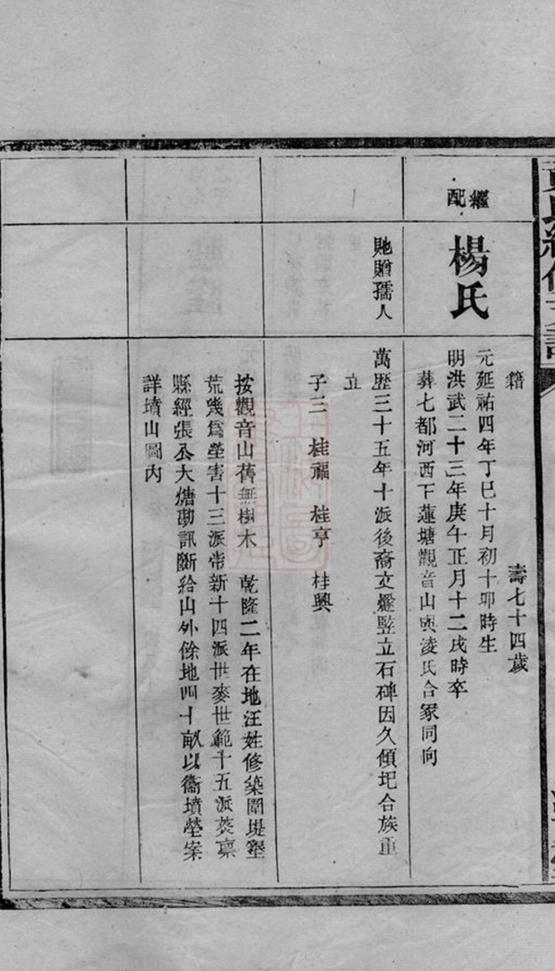 繼配
楊氏
貤贈孺人
籍
壽七十四歲
元延祐四年丁巳十月初十卯時生
明洪武二十三年庚午正月十二戌時卒
葬七都河西下蓮塘觀音山與淩氏合冢同向
萬歷三十五年十派後裔文燿竪立石碑因久傾圮合族重
立
子三 桂福 桂亨 桂興
按觀音山舊無樹木 乾隆二年在地汪姓修築圍堤壑
荒幾爲塋害十三派帝新十四派世麥世範十五派稟
縣經張公大煻勘訊斷給山外餘地四十畝以衞墳塋案
詳墳山圖內